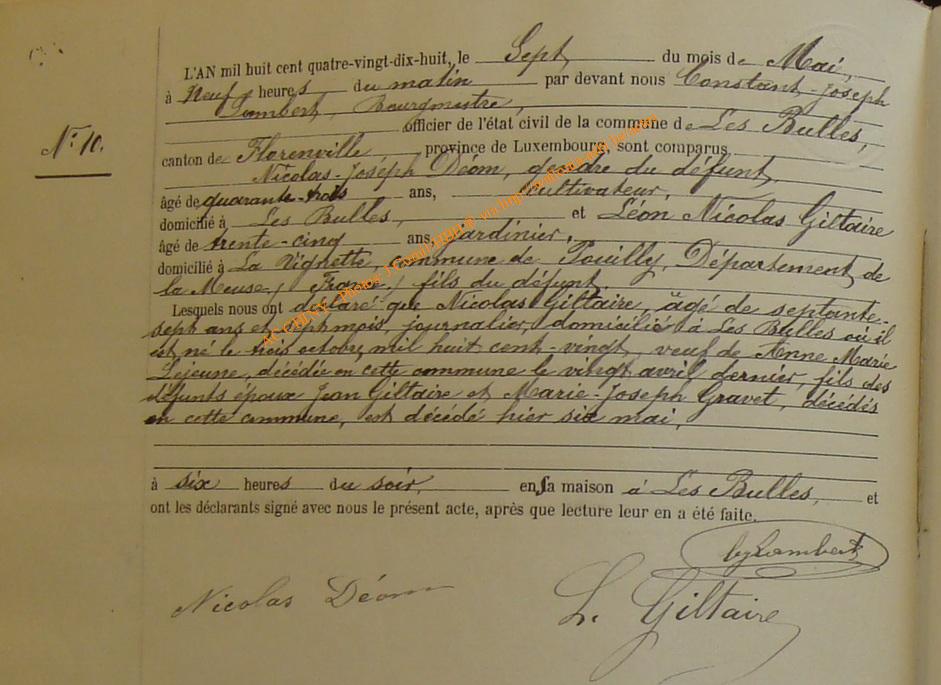 L'AN mil huit cent quatre-vingt-dix-huit, le Sept du mois de Mai,
à Neuf heures du matin par devant nous Constant-Joseph
Lambert, Bourgmestre,
officier de l'état civil de la commune de Les Bulles,
N° 10.
canton de Florenville, province de Luxembourg, sont comparus
Nicolas-Joséph Déom, gendre du défunt,
âgé de quarante-trois ans, cultivateur,
domicilié à Les Bulles, et Léon Nicolas Giltaire
âgé de trente-cinq ans, jardinier,
domicilié à La Vignette, Commune de Pouilly, Département de
la Meuse, France, fils du défunt.
Lesquels nous ont déclaré que Nicolas Giltaire, âgé de septante-
sept ans et sept mois, journalier, domicilié à Les Bulles où il
est né le trois octobre mil huit cent-vingt, veuf de Anne Marie
Lejeune, décédée en cette commune le vingt avril dernier, fils des
défunts époux Jean Giltaire et Marie-Joseph Gravet, décédés
en cette commune, est décédé hier six mai,
à six heures du soir, en sa maison à Les Bulles, et
ont les déclarants signé avec nous le présent acte, après que lecture leur en a été faite.
Lambert
Nicolas Déom
L. Giltaire